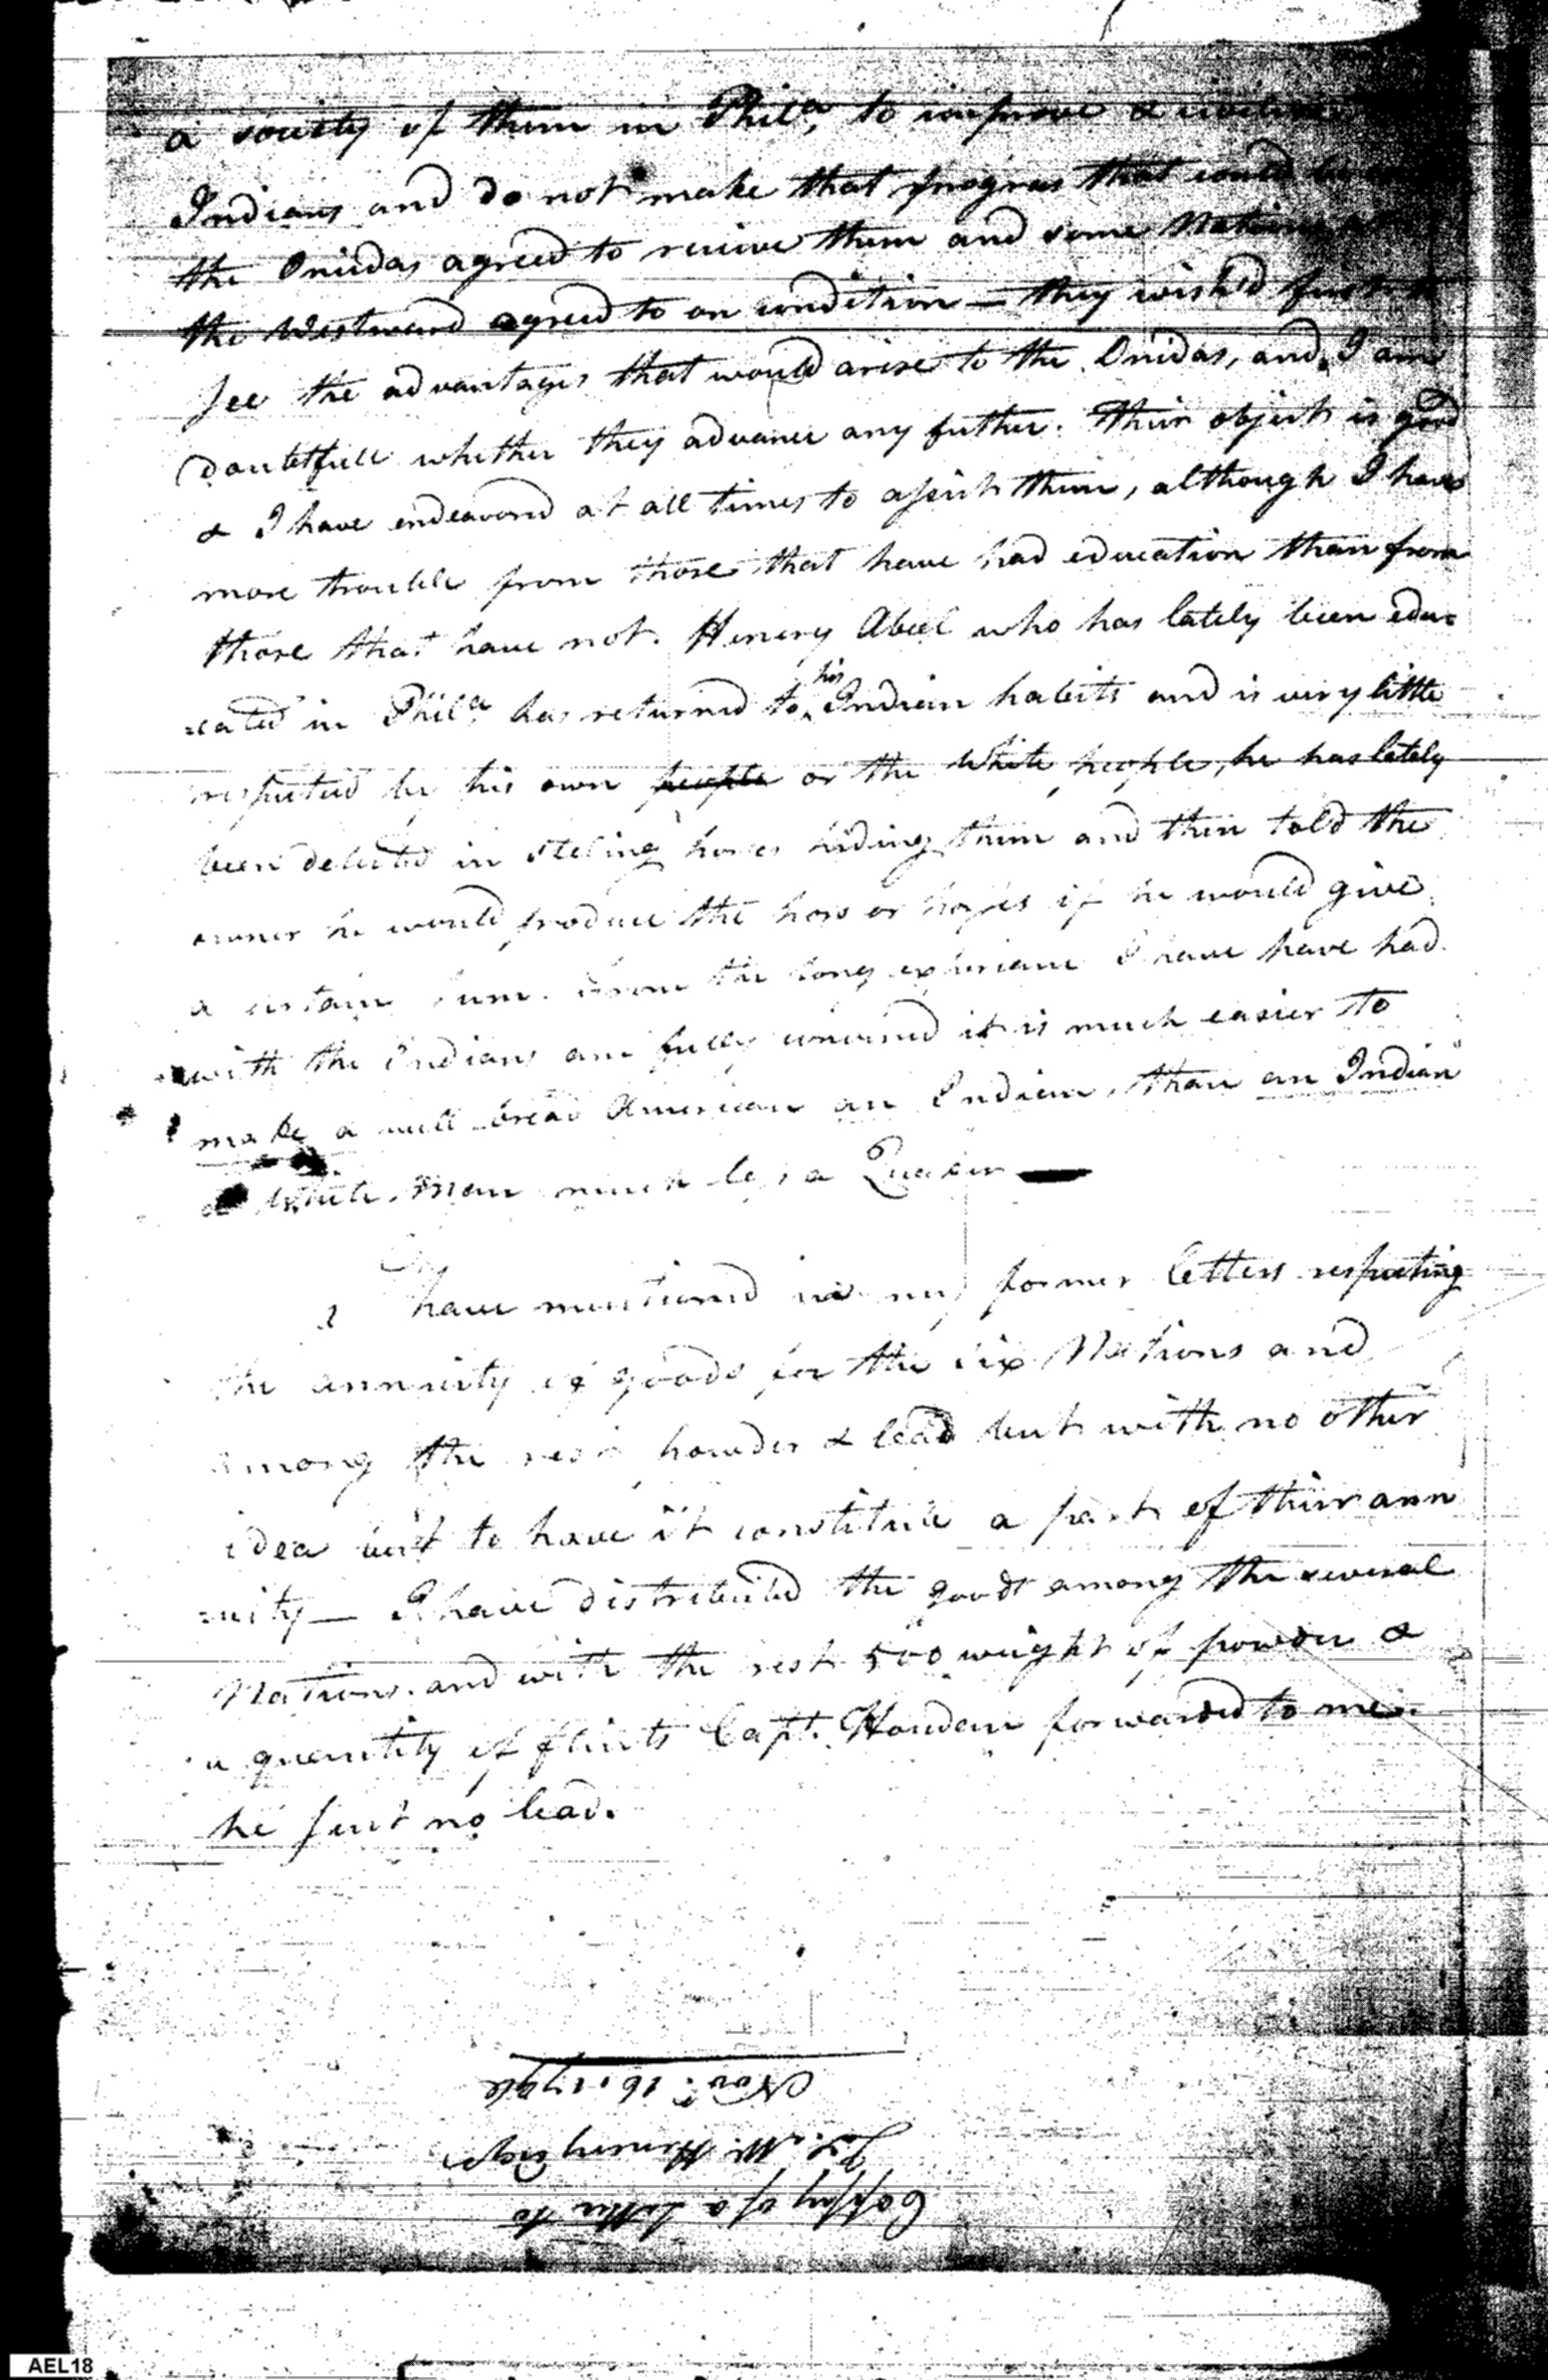 a society of them in Phila, to improve & civilize
Indians and do not make that progress that could be
the Oniedas agreed to recieve them and some Nations
the Westward agreed to on condition — they wish'd first to
see the advantages that would arise to the Onidas, and I am
doubtfull whether they advance any futher. Their object is good
& I have endeavord at all times to assist them, although I have
more trouble from those that have had education than from
those that have not. Henery Abeel who has lately been edu=
=cated in Phila. has returned to his Indian habits and is very little
respected by his own people or the White people, he has lately
been detected in steling horses hiding them and then told the
owner he would produce the hors or horses if he would give
a certain sum. From the long experiance I have have had
with the Indians am fully convinced it is much easier to
make a well bread American an Indian, than an Indian
a White Man much less a Quaker —
I have mentioned in my former letters respecting
the annuity of goods for the six Nations and
among the rest powder & lead but with no other
idea but to have it constitute a part of their ann
=uity — I have distributed the goods among the several
Nations. and with the rest 500 weight of powder &
a quantity of flints Capt. Howdein forwarded to me.
he sent no lead.
Coppy of a Letter to
Jas. Mc. Henery Esqr
Novr. 16. 1796
AEL18